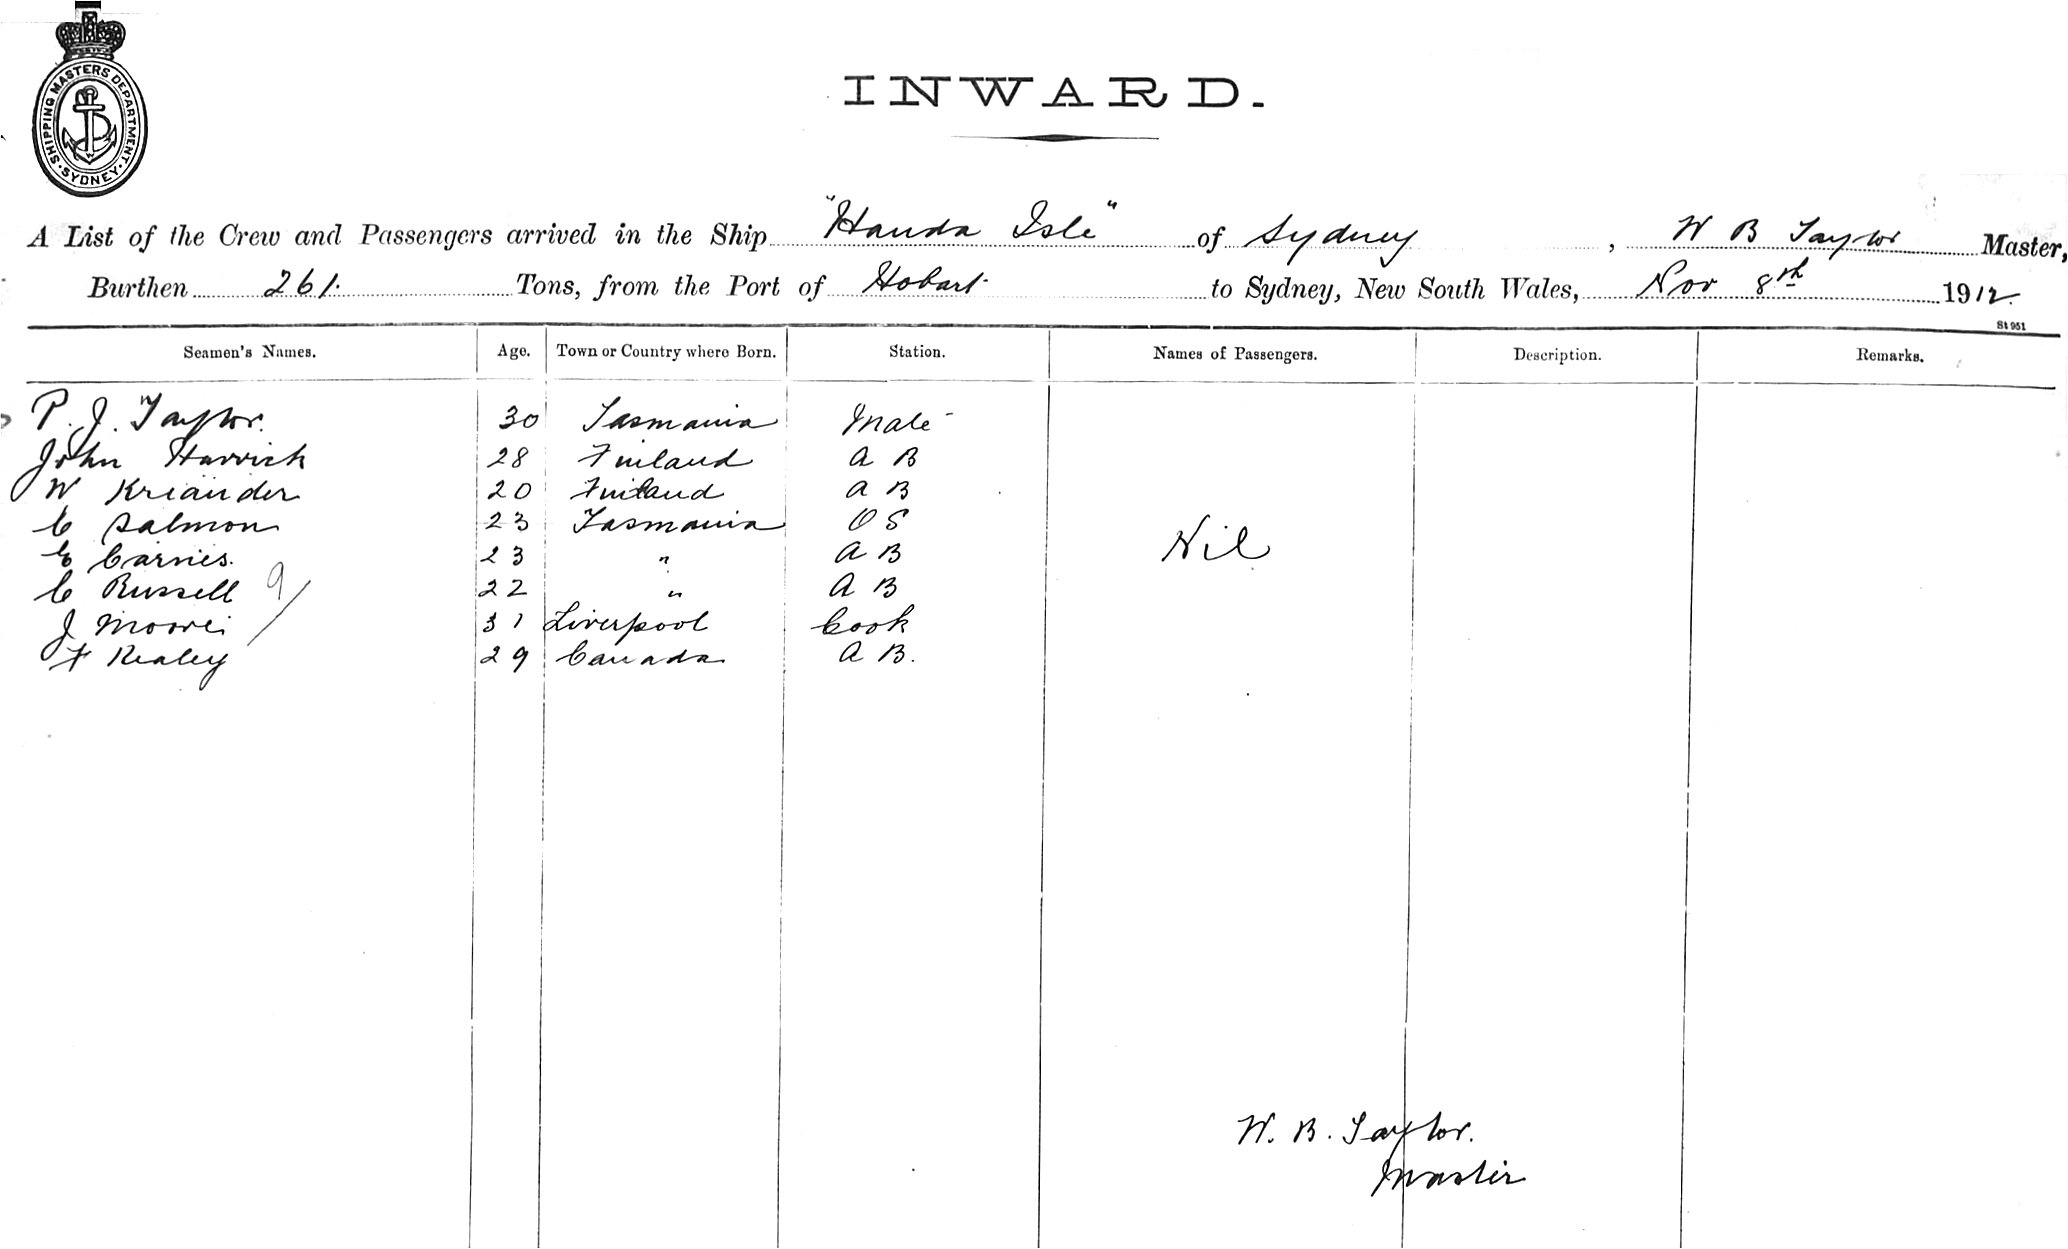 SHIPPING MASTERS DEPARTMENT · SYDNEY ·
INWARD.
A List of the Crew and Passengers arrived in the Ship "Handa Isle" of Sydney, W B Taylor Master,
Burthen 261. Tons, from the Port of Hobart to Sydney, New South Wales, Nov 8th 1912.
St 951
Seamen's Names. Age. Town or Country where Born. Station. Names of Passengers. Description. Remarks.
P. J. Taylor. 30 Tasmania Mate
John Harrich 28 Finland A B
W Kriander 20 Finland A B
C Salmon 23 Tasmania O S
E Carnes. 23 " A B
Nil
C Russell 22 " A B
9/
J Moore 31 Liverpool Cook
F Kealey 29 Canada A B.
W. B. Taylor.
Master